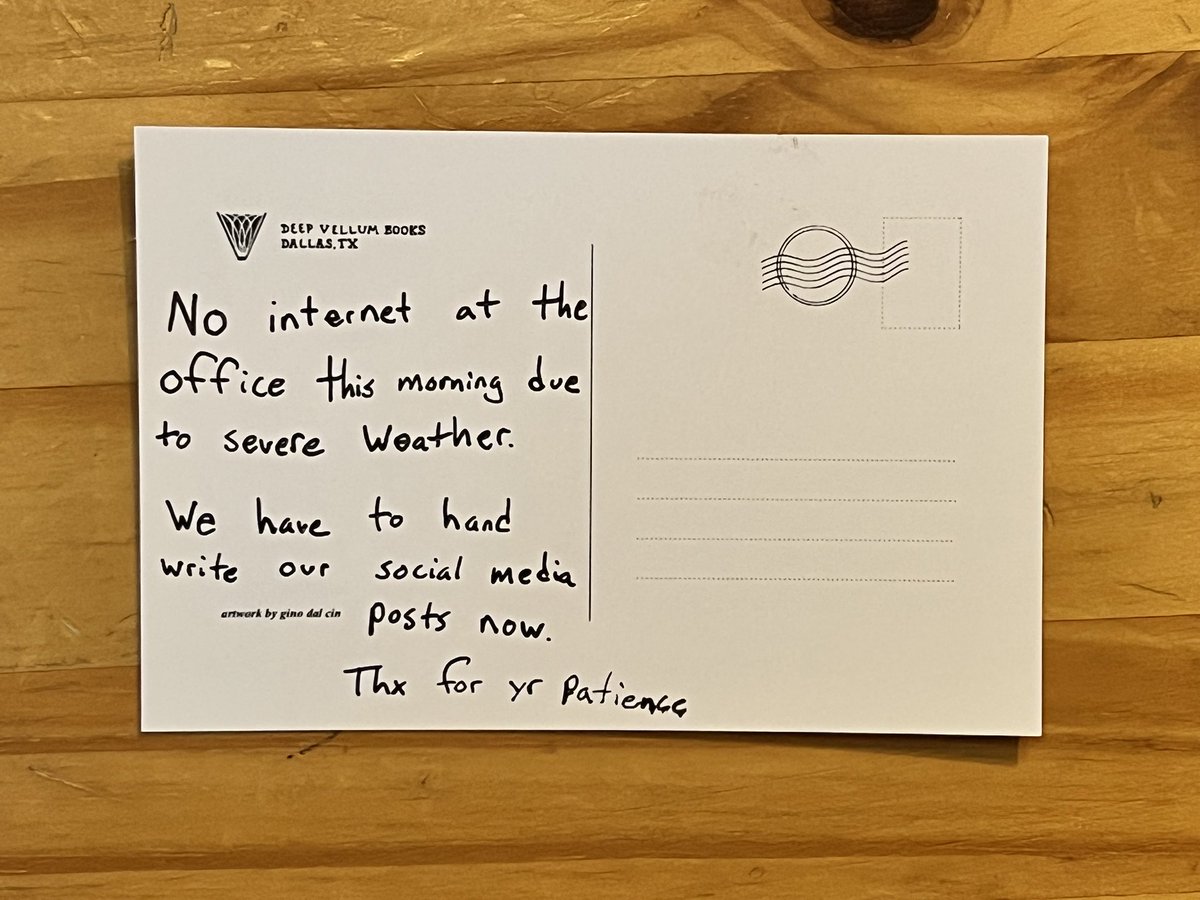 DEEP VELLUM BOOKS
DALLAS, TX
No internet at the
office this morning due
to severe Weather.
We have to hand
write our social media
artwork by gino dal cin posts now.
Thx for yr patience